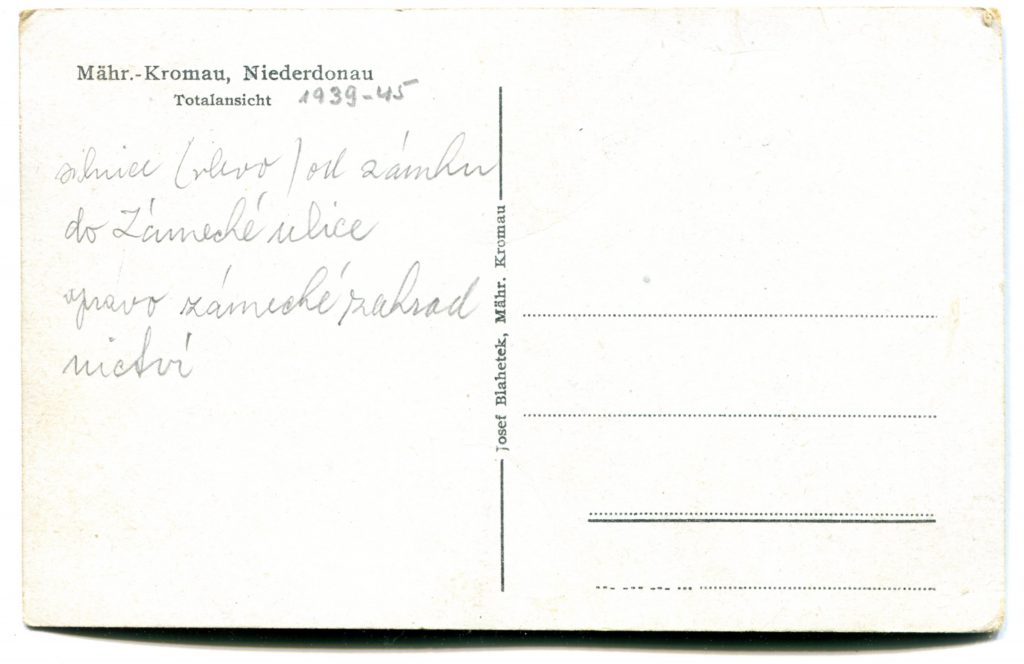 Mähr.-Kromau, Niederdonau
Totalansicht 1939-45
silnice (vlevo) od zámku
do Zámecké ulice
vpravo zámecké zahrad
nictví
Josef Blahetek, Mähr. Kromau